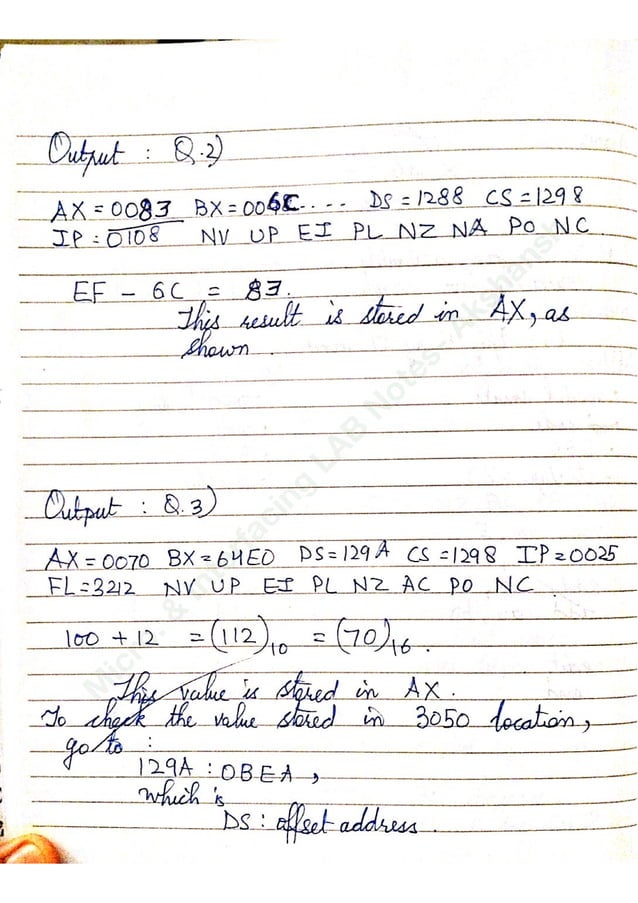 Output : Q.2)
AX = 0083 BX = 006C .... DS = 1288 CS = 1298
IP : 0108 NV UP EI PL NZ NA PO NC
EF - 6C = 83.
This result is stored in AX, as
shown.
Output : Q.3)
AX = 0070 BX = 64E0 DS = 129A CS = 1298 IP = 0025
FL = 3212 NV UP EI PL NZ AC PO NC
100 + 12 = (112)10 = (70)16.
This value is stored in AX.
To check the value stored in 3050 location,
go to :
129A : 0BEA,
which is
DS : offset address.